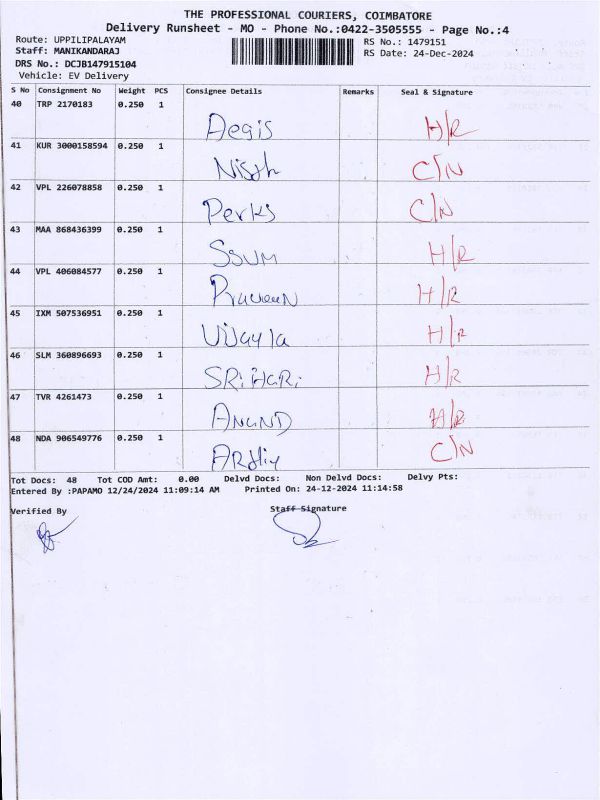 THE PROFESSIONAL COURIERS, COIMBATORE
Delivery Runsheet - MO - Phone No.:0422-3505555 - Page No.:4
Route: UPPILIPALAYAM RS No.: 1479151
Staff: MANIKANDARAJ RS Date: 24-Dec-2024
DRS No.: DCJB147915104
Vehicle: EV Delivery
S No Consignment No Weight PCS Consignee Details Remarks Seal & Signature
40 TRP 2170183 0.250 1
Aegis H/R
41 KUR 3000158594 0.250 1
Nisth C/N
42 VPL 226078858 0.250 1
Perks C/N
43 MAA 868436399 0.250 1
SSUM H/R
44 VPL 406084577 0.250 1
Praveen H/R
45 IXM 507536951 0.250 1
Vijayla H/R
46 SLM 360896693 0.250 1
SRiHARi H/R
47 TVR 4261473 0.250 1
ANAND H/R
48 NDA 906549776 0.250 1
C/N
Tot Docs: 48 Tot COD Amt: 0.00 Delvd Docs: Non Delvd Docs: Delvy Pts:
Entered By :PAPAMO 12/24/2024 11:09:14 AM Printed On: 24-12-2024 11:14:58
Verified By Staff Signature